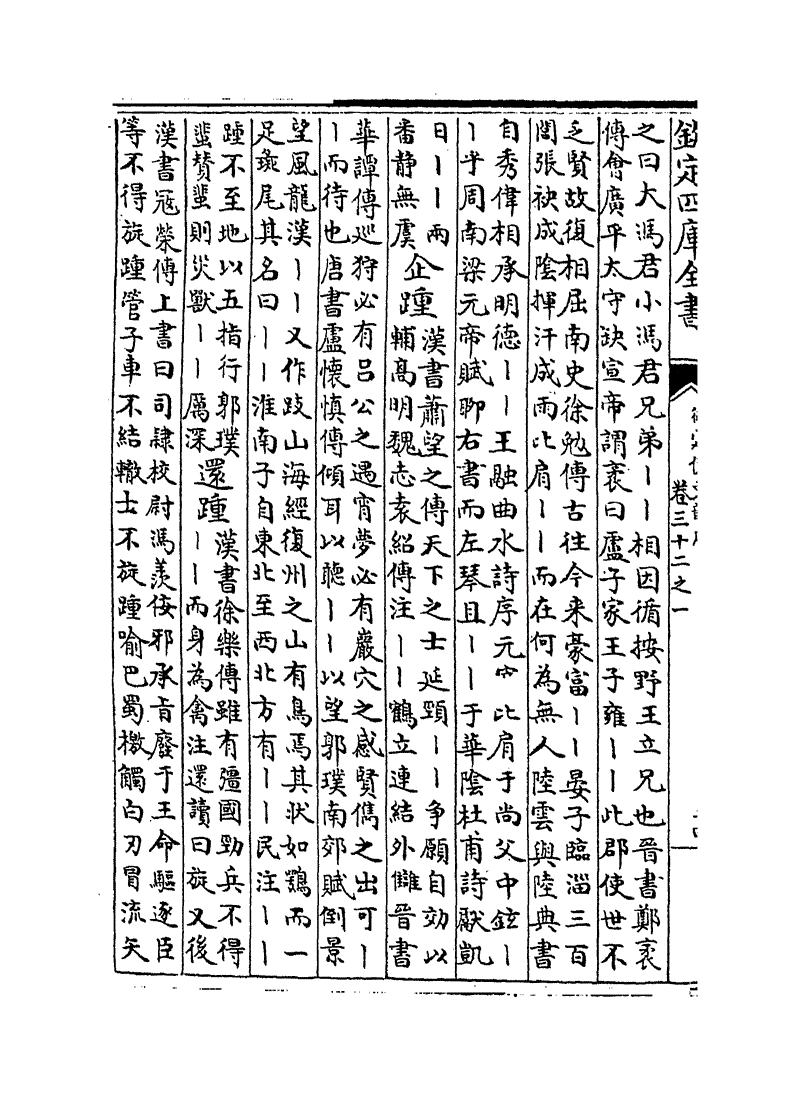 欽定四庫全書
卷三十二之一
之曰大馮君小馮君兄弟丨丨相因循按野王立兄也晉書鄭袤
傳會廣平太守缺宣帝謂袤曰盧子家王子雍丨丨此郡使世不
乏賢故復相屈南史徐勉傳古往今来豪富丨丨晏子臨淄三百
閭張袂成陰揮汗成雨比肩丨丨而在何為無人陸雲與陸典書
自秀偉相承明德丨丨王融曲水詩序元宰比肩于尚父中鉉丨
丨乎周南梁元帝賦聊右書而左琴且丨丨于華陰杜甫詩獻凱
日丨丨兩
蕃静無虞
企踵
漢書蕭望之傳天下之士延頸丨丨争願自効以
輔髙明魏志袁紹傳注丨丨鶴立連結外讎晉書
華譚傳巡狩必有吕公之遇宵夢必有巖穴之感賢儁之出可丨
丨而待也唐書盧懷慎傳傾耳以聽丨丨以望郭璞南郊賦倒景
望風龍漢丨丨又作跂山海經復州之山有鳥焉其狀如鴞而一
足彘尾其名曰丨丨淮南子自東北至西北方有丨丨民注丨丨
踵不至地以五指行郭璞
蜚賛蜚則災獸丨丨厲深
還踵
漢書徐樂傳雖有彊國勁兵不得
丨丨而身為禽注還讀曰旋又後
漢書冦榮傳上書曰司隸校尉馮羡佞邪承旨廢于王命驅逐臣
等不得旋踵管子車不結轍士不旋踵喻巴蜀檄觸白刃冒流矢